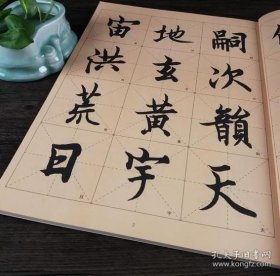 嗣次韻天
地玄黄宇
宙洪荒日
2
孔夫子旧书网